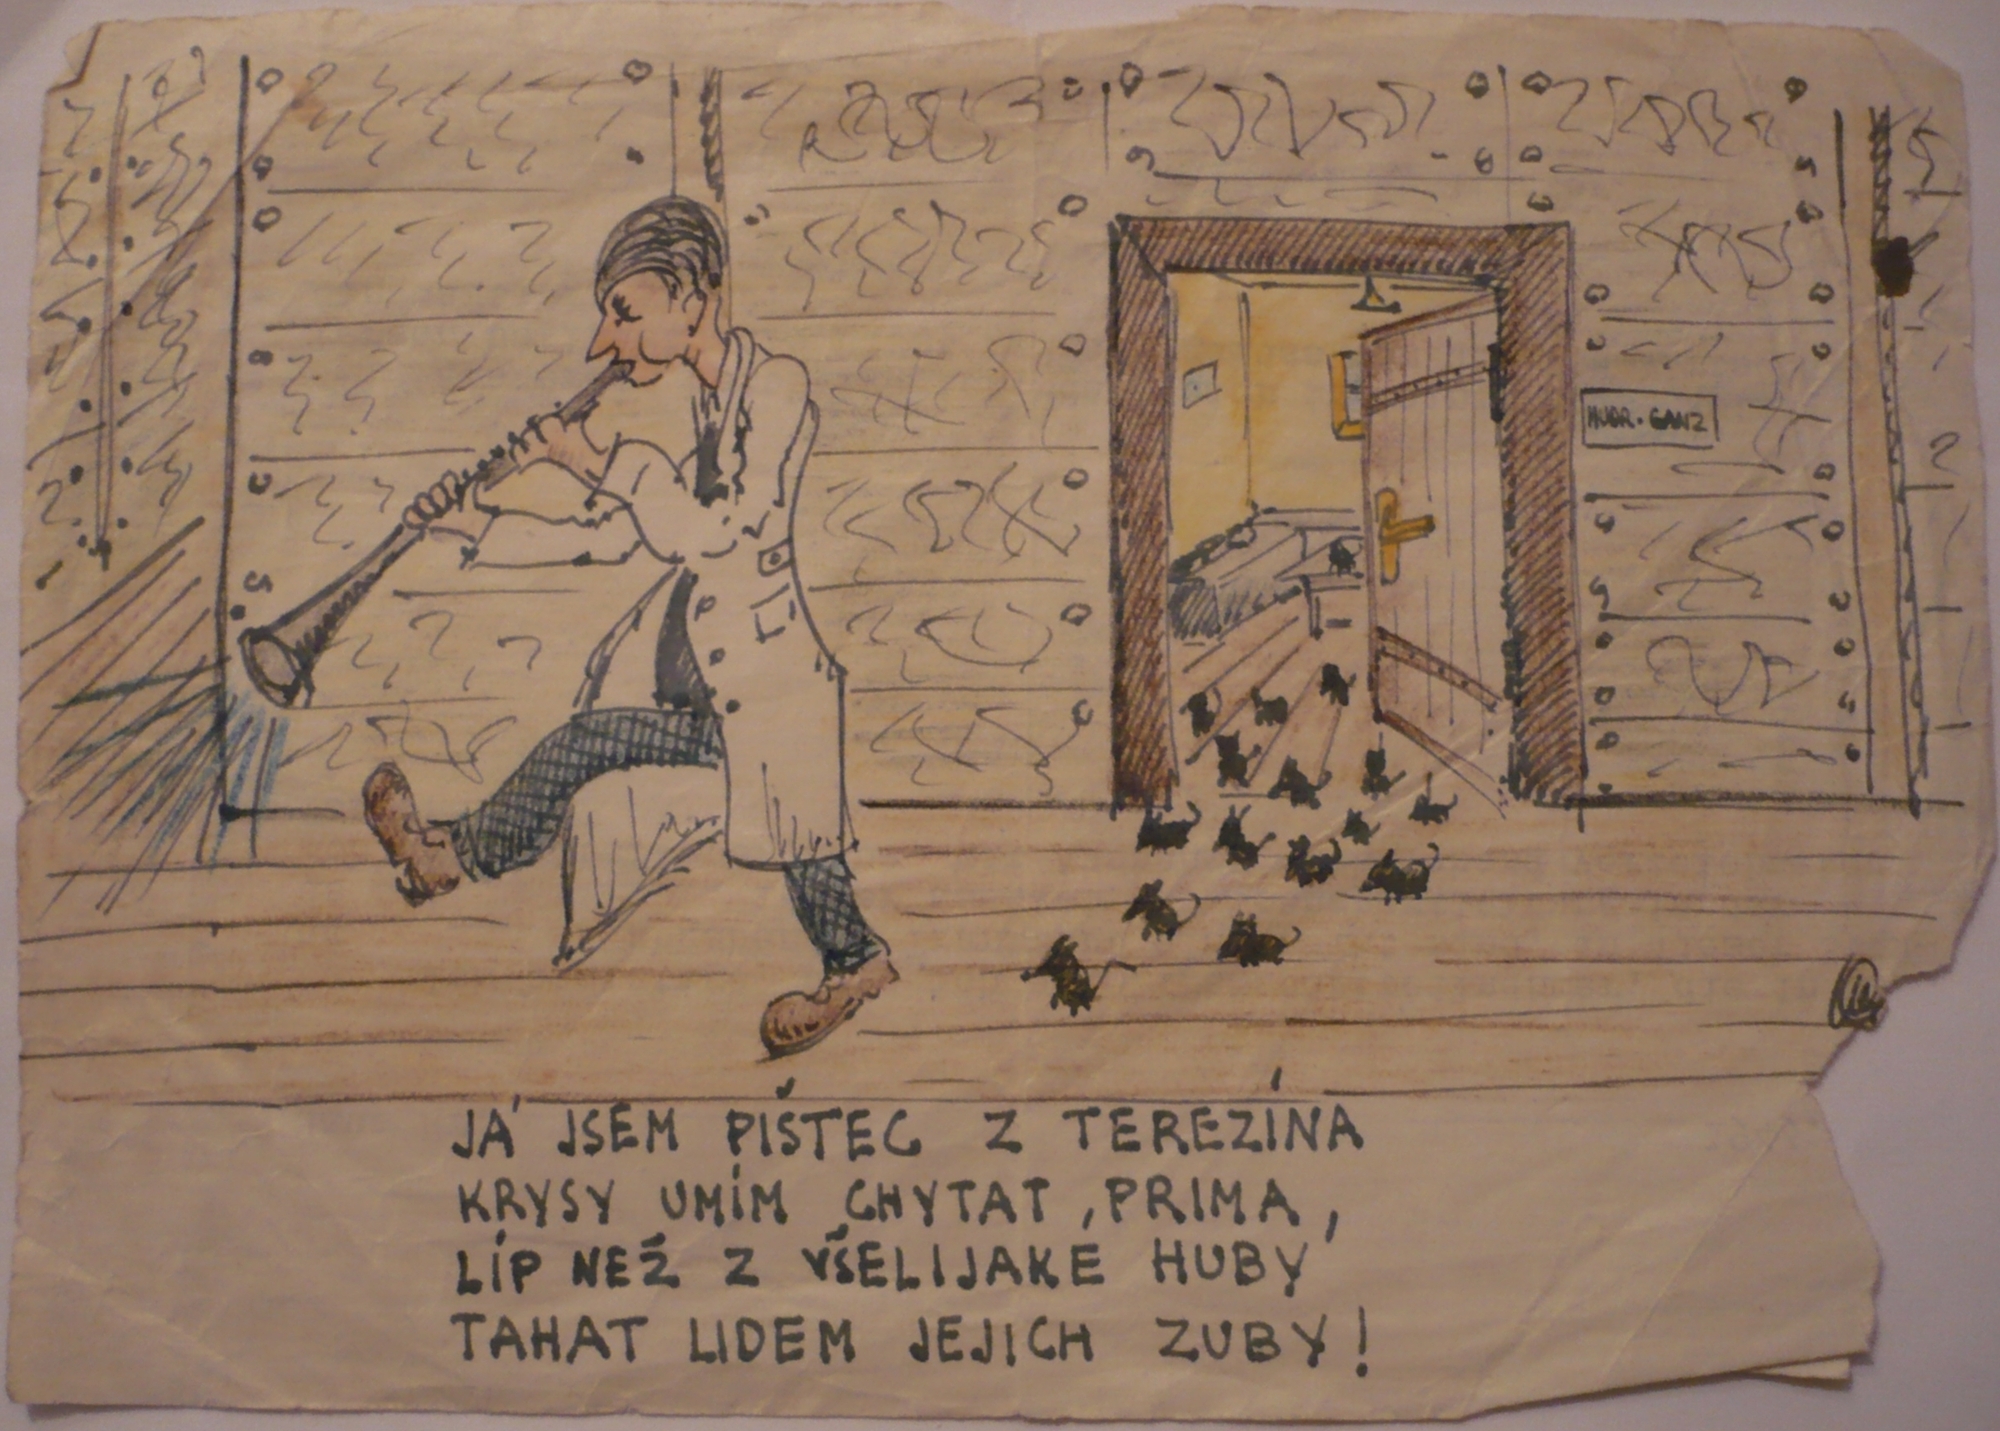 MUDR. GANZ
JÁ JSEM PIŠTEC Z TEREZÍNA
KRYSY UMÍM CHYTAT, PRIMA,
LÍP NEŽ Z VŠELIJAKÉ HUBY
TAHAT LIDEM JEJICH ZUBY!